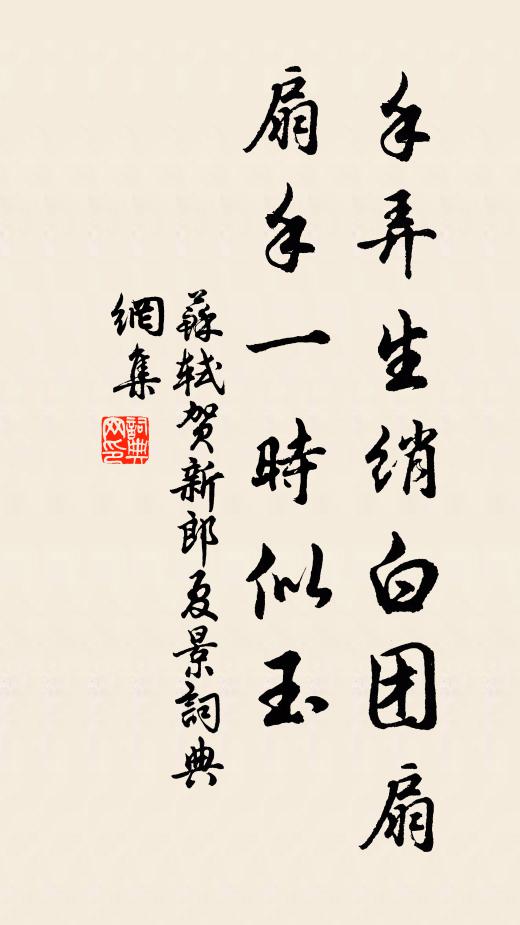 手弄生绡白团扇
扇手一時似玉
蘇轼贺新郎夏景詞典
網集
詞典网印